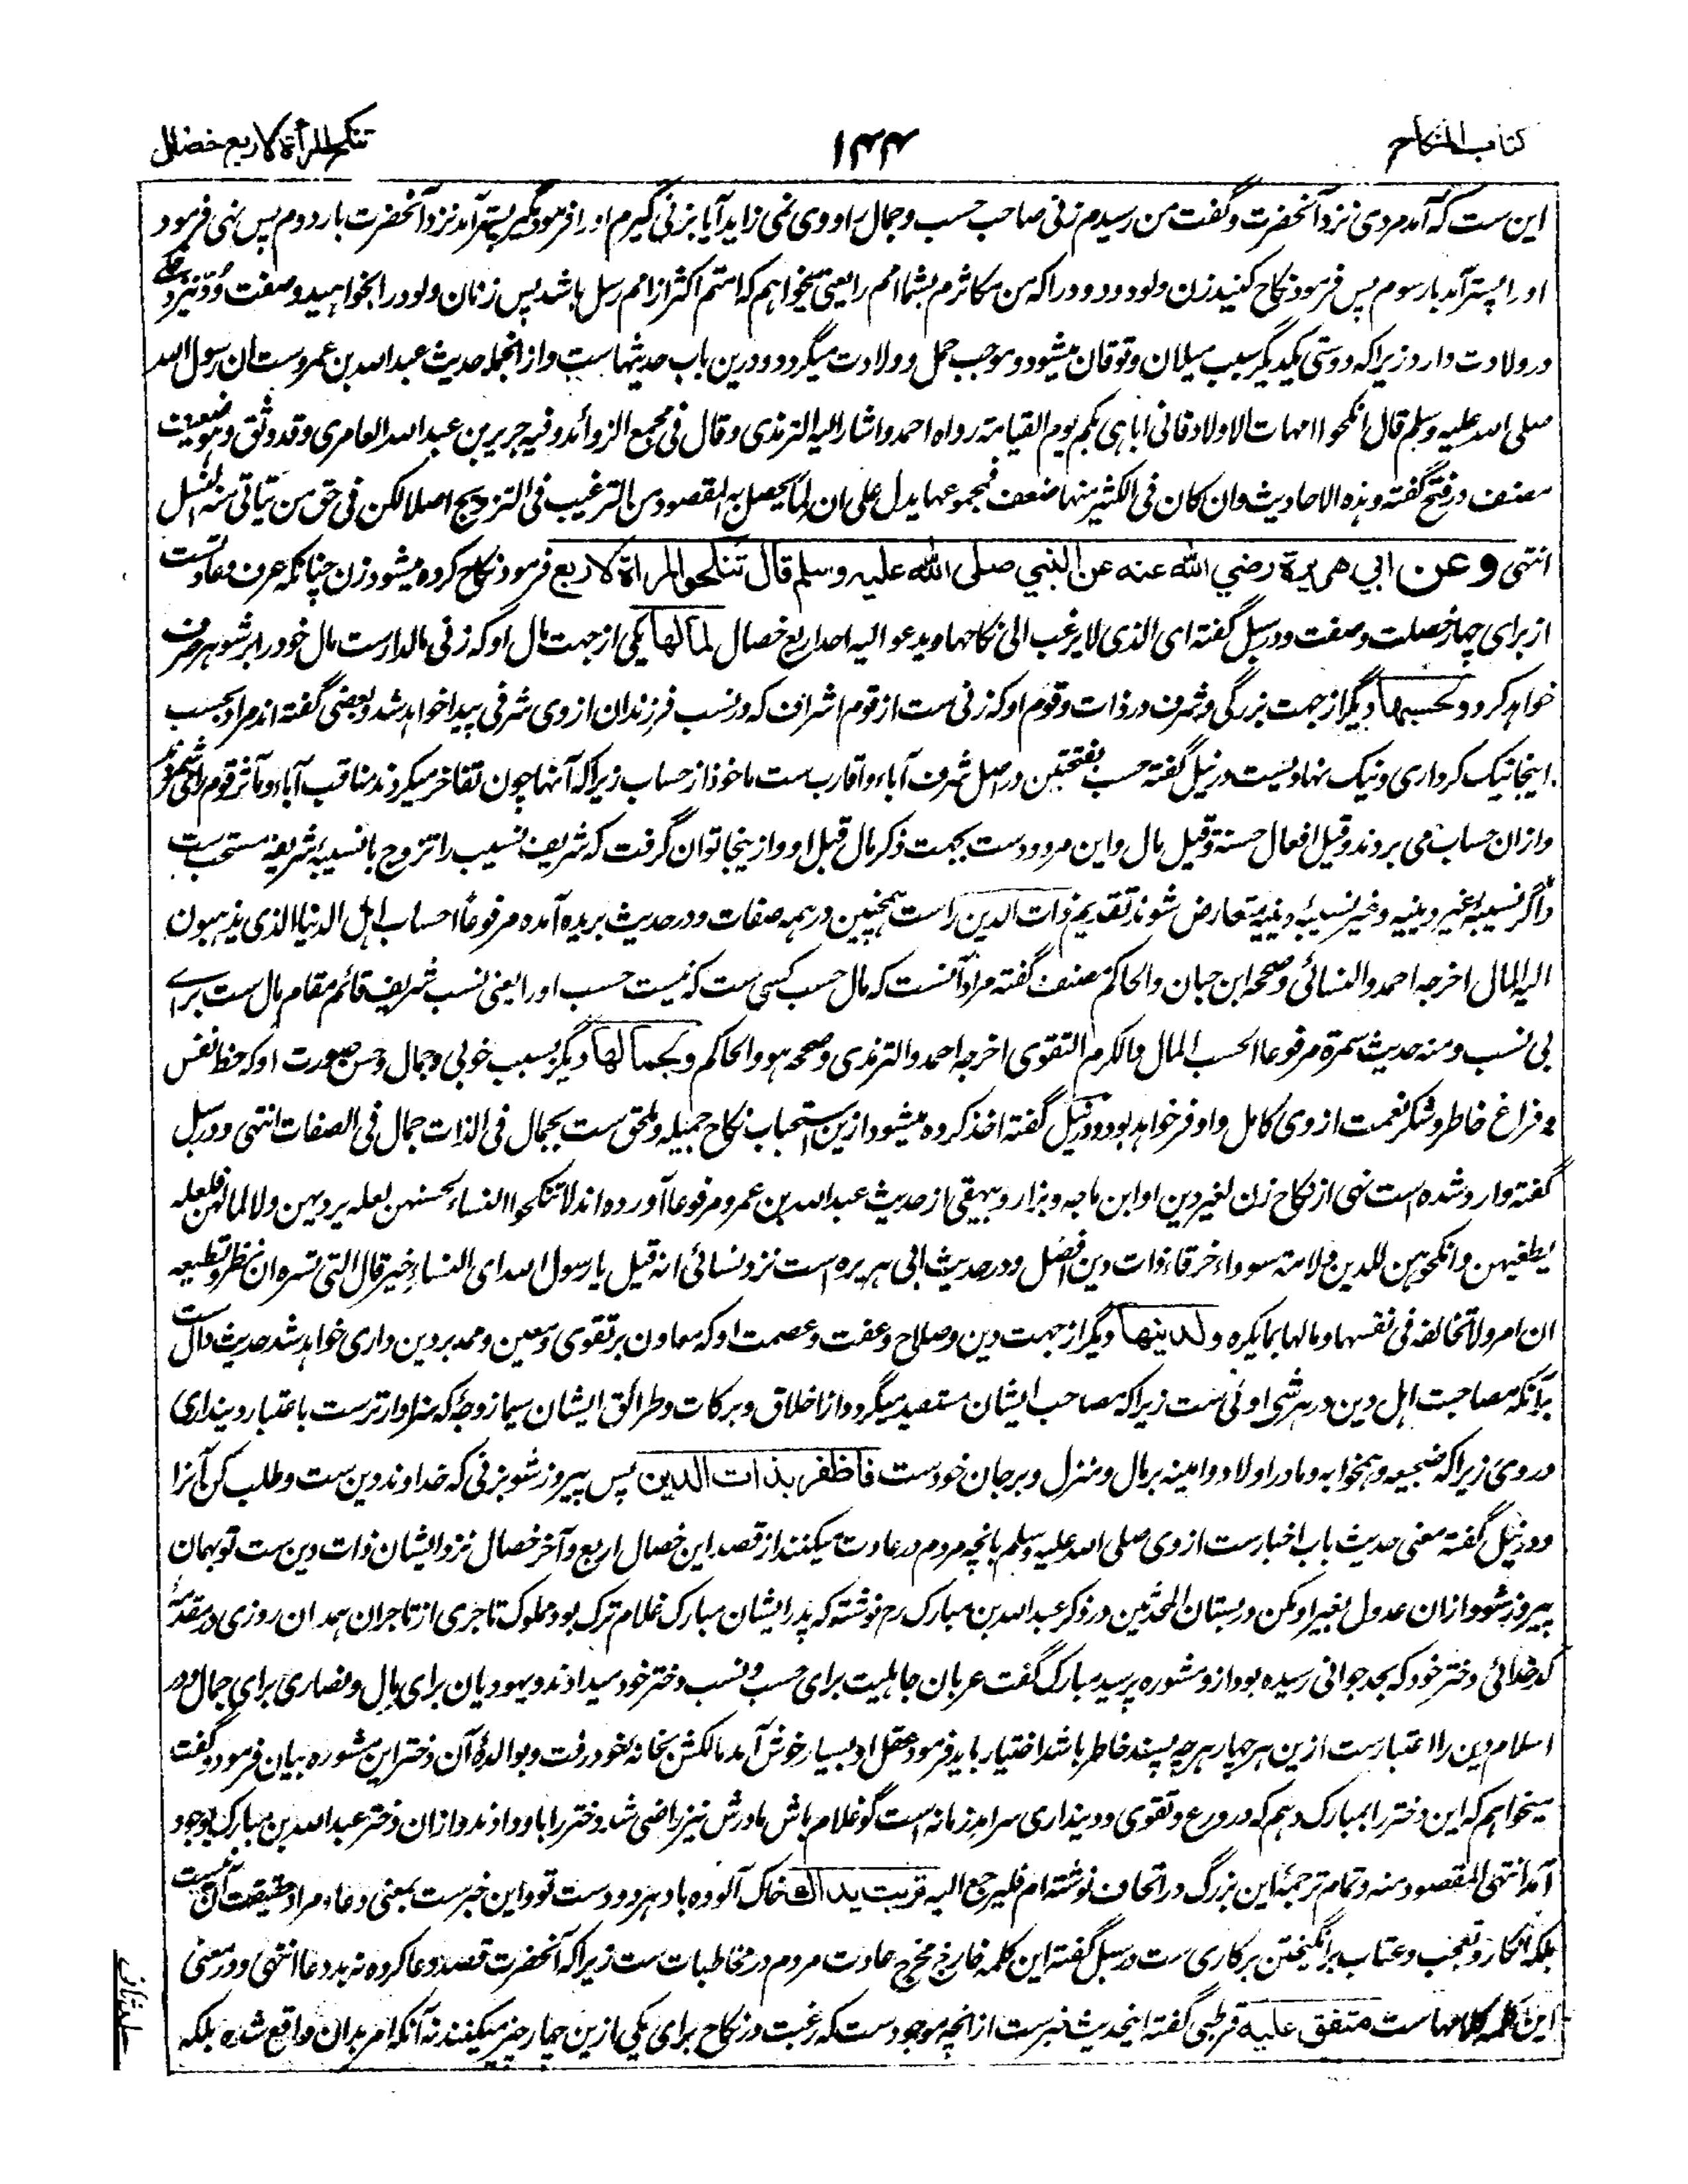 کتاب النکاح
۱۴۴
تنکح المرأة لاربع خصال
این ست که آمد مردی نزد آنحضرت و گفت من رسیدم زنی صاحب حسب و جمال را و وی نمی زاید آیا بزنی گیرم او را فرمود مگیر پستر آمد نزد آنحضرت بار دوم پس نهی فرمود
او را پستر آمد بار سوم پس فرمود نکاح کنید زن ولود و ودود را که من مکاثرم بشما امم را یعنی میخواهم که امتم اکثر از امم رسل باشد پس زنان ولود را بخواهید و صفت ودّ نیز دخلے
در ولادت دارد زیرا که دوستی یکدیگر سبب میلان و توقان میشود و موجب حمل و ولادت میگردد و درین باب حدیثهاست و از انجمله حدیث عبد الله بن عمروست ان رسول الله
صلی الله علیه وسلم قال انکحوا امهات الاولاد فانی اباهی بکم یوم القیامة رواه احمد و اشار الیه الترمذی و قال فی مجمع الزوائد و فیه جریر بن عبد الله العامری و قد وثق و هو ضعیف
مصنف در فتح گفته و هذه الاحادیث و ان کان فی الکثیر منها ضعف فمجموعها یدل علی ان لما یحصل به المقصود من الترغیب فی التزویج اصلا لکن فی حق من یتاتی منه النسل
انتهی وعن ابي هريرة رضي الله عنه عن النبي صلى الله عليه وسلم قال تنكح المرأة لاربع فرمود نکاح کرده میشود زن چنانکه عرف و عادت ست
از برای چهار خصلت و صفت و در سبل گفته ای الذی لا یرغب الی نکاحها و یدعو الیه احد اربع خصال لمالها یکی از جهت مال او که زنی مالدارست مال خود را بر شوهر صرف
خواهد کرد و لحسبها دیگر از جهت بزرگی و شرف در ذات و قوم او که زنی ست از قوم اشراف که در نسب فرزندان از وی شرفی پیدا خواهد شد و بعضی گفته اند مراد بحسب
اینجا نیک کرداری و نیک نهادیست در نیل گفته حسب بفتحتین در اصل شرف آباء و اقارب ست ماخوذ از حساب زیرا که آنها چون تفاخر میکردند مناقب آباء و مآثر قوم را می شمردند
و ازان حساب می بردند و قیل افعال حسنة و قیل مال و این مردودست بجهت ذکر مال قبل او و ازینجا توان گرفت که شریف نسیب را تزوج با نسیبۀ شریفه مستحب ست
و اگر نسیبۀ غیر دینیه و غیر نسیبۀ دینیه متعارض شوند تقدیم ذات الدین راست همچنین در همه صفات و در حدیث بریده آمده مرفوعا احساب اهل الدنیا الذی یذهبون
الیه المال اخرجه احمد و النسائی و صححه ابن حبان و الحاکم مصنف گفته مراد آنست که مال حسب کسی ست که نیست حسب او را یعنی نسب شریف قائم مقام مال ست برای
بی نسب و منه حدیث سمرة مرفوعا الحسب المال و الکرم التقوی اخرجه احمد و الترمذی و صححه هو و الحاکم و لجمالها دیگر بسبب خوبی و جمال و حسن صورت او که حظ نفس
و فراغ خاطر و شکر نعمت از وی کامل و اوفر خواهد بود و در نیل گفته اخذ کرده میشود ازین استحباب نکاح جمیله و ملحق ست بجمال فی الذات جمال فی الصفات انتهی و در سبل
گفته وارد شده است نهی از نکاح زن لغیر دین او ابن ماجه و بزار و بیهقی از حدیث عبد الله بن عمرو مرفوعا آورده اند لا تنکحوا النساء لحسنهن لعله یردیهن و لا لمالهن فلعله
یطغیهن و انکحوهن للدین و لامة سوداء خرقاء ذات دین افضل و در حدیث ابی هریره است نزد نسائی انه قیل یا رسول الله ای النساء خیر قال التی تسره ان نظر و تطیعه
ان امر و لا تخالفه فی نفسها و مالها بما یکره و لدينها دیگر از جهت دین و صلاح و عفت و عصمت او که معاون بر تقوی و معین و ممد بر دین داری خواهد شد حدیث دال ست
بر آنکه مصاحبت اهل دین در هر شی اولی ست زیرا که مصاحب ایشان مستفید میگردد از اخلاق و برکات و طرائق ایشان سیما زوجه که سزاوارترست باعتبار دینداری
در وی زیرا که ضجیعه و همخوابه و مادر اولاد و امینه بر مال و منزل و بر جان خودست فاظفر بذات الدين پس پیروز شو بزنی که خداوند دین ست و طلب کن آنرا
و در نیل گفته معنی حدیث باب اخبارست از وی صلی الله علیه وسلم بانچه مردم در عادت میکنند از قصد این خصال اربع و آخر خصال نزد ایشان ذات دین ست تو بهمان
پیروز شو و ازان عدول بغیر او مکن در بستان المحدثین در ذکر عبد الله بن مبارک رح نوشته که پدر ایشان مبارک غلام ترک بود مملوک تاجری از تاجران همدان روزی در مقدمۀ
کدخدائی دختر خود که بحد جوانی رسیده بود ازو مشوره پرسید مبارک گفت عربان جاهلیت برای حسب و نسب دختر خود میدادند و یهودیان برای مال و نصاری برای جمال و در
اسلام دین را اعتبارست ازین هر چهار هر چه پسند خاطر باشد اختیار باید فرمود عقل او بسیار خوش آمد مالکش بخانه خود رفت و بوالدۀ آن دختر این مشوره بیان فرمود و گفت
میخواهم که این دختر را بمبارک دهم که در ورع و تقوی و دینداری سرآمد زمانه است گو غلام باش مادرش نیز راضی شد و دختر را باو دادند و ازان دختر عبد الله بن مبارک بوجود
آمد انتهی المقصود منه و تمام ترجمۀ این بزرگ در اتحاف نوشته ام فلیرجع الیه تربت يداك خاک آلوده باد هر دو دست تو و این خبرست بمعنی دعاء و مراد حقیقت آن نیست
بلکه انکار و تعجب و عتاب برانگیختن بر کاری ست در سبل گفته این کلمه خارج مخرج عادت مردم در مخاطبات ست زیرا که آنحضرت قصد دعا کرده نه بد دعا انتهی و در معنی
این کلمه کلامهاست متفق عليه قرطبی گفته اینحدیث خبرست ازانچه موجودست که رغبت در نکاح برای یکی ازین چهار چیز میکنند نه آنکه امر بدان واقع شده بلکه
جلد ثانی